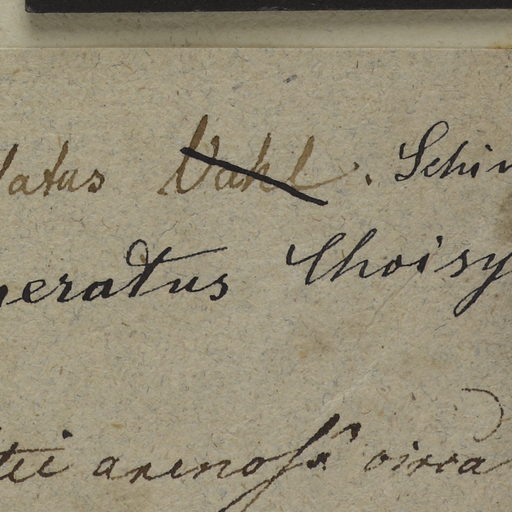 latus Vahl. Schim
neratus Choisy
tii arenosa circa